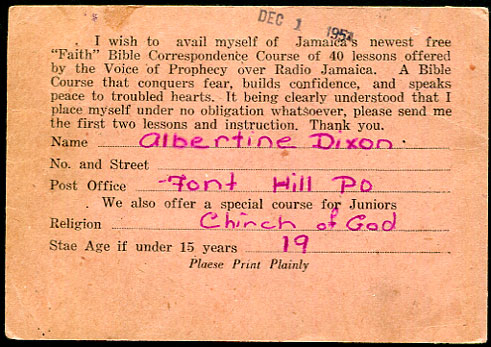 DEC 1 1951
I wish to avail myself of Jamaica's newest free
"Faith" Bible Correspondence Course of 40 lessons offered
by the Voice of Prophecy over Radio Jamaica. A Bible
Course that conquers fear, builds confidence, and speaks
peace to troubled hearts. It being clearly understood that I
place myself under no obligation whatsoever, please send me
the first two lessons and instruction. Thank you.
Name Albertine Dixon
No. and Street
Post Office Font Hill PO
We also offer a special course for Juniors
Religion Chirch of God
Stae Age if under 15 years 19
Plaese Print Plainly